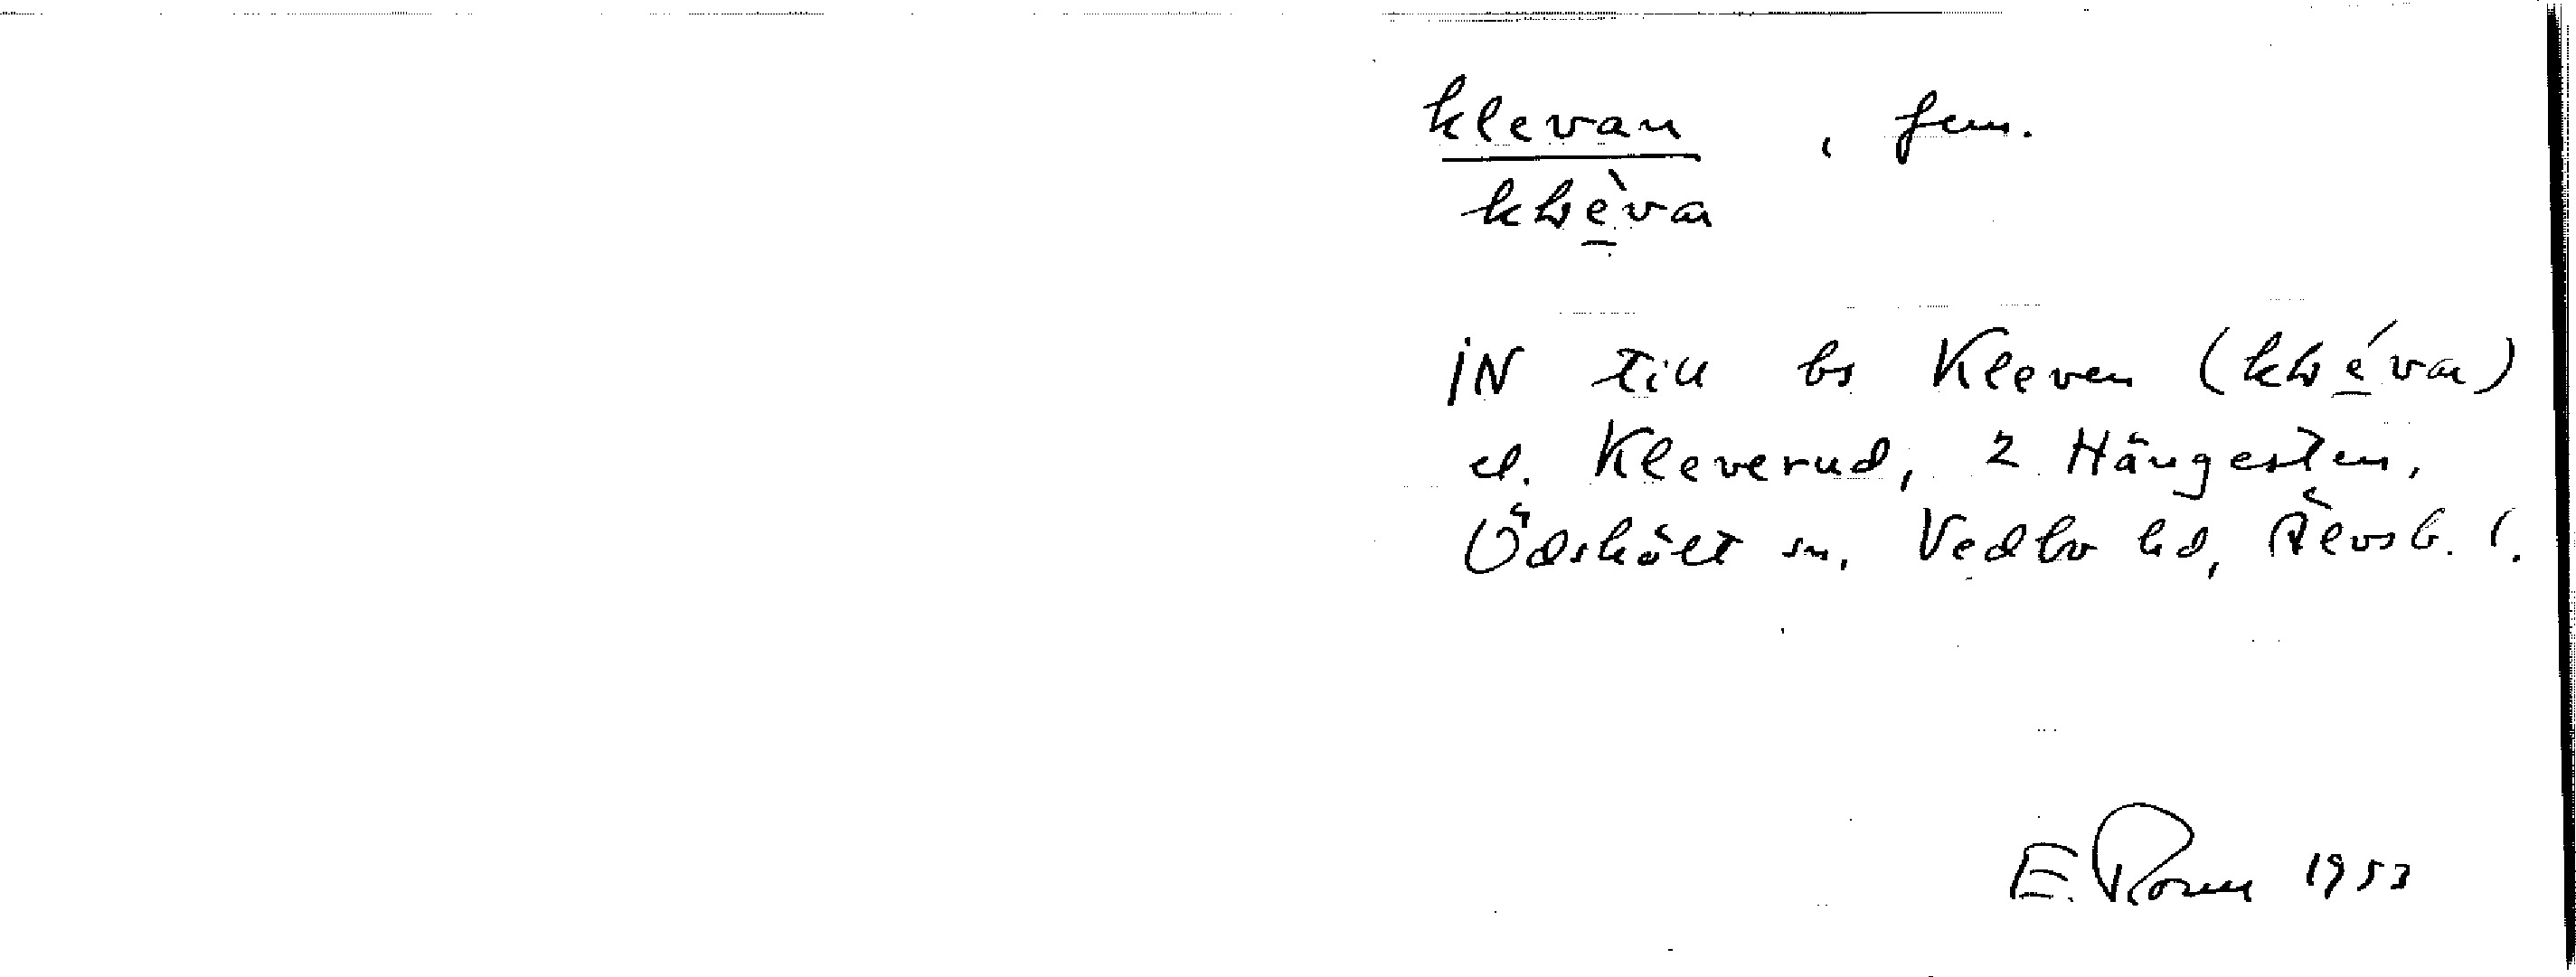 klevan , fem.
IN till bs Kleven
el. Kleverud, 2 Hängesten,
Ödskölt sn, Vedbo hd, Älvsb. l.
E. 1953